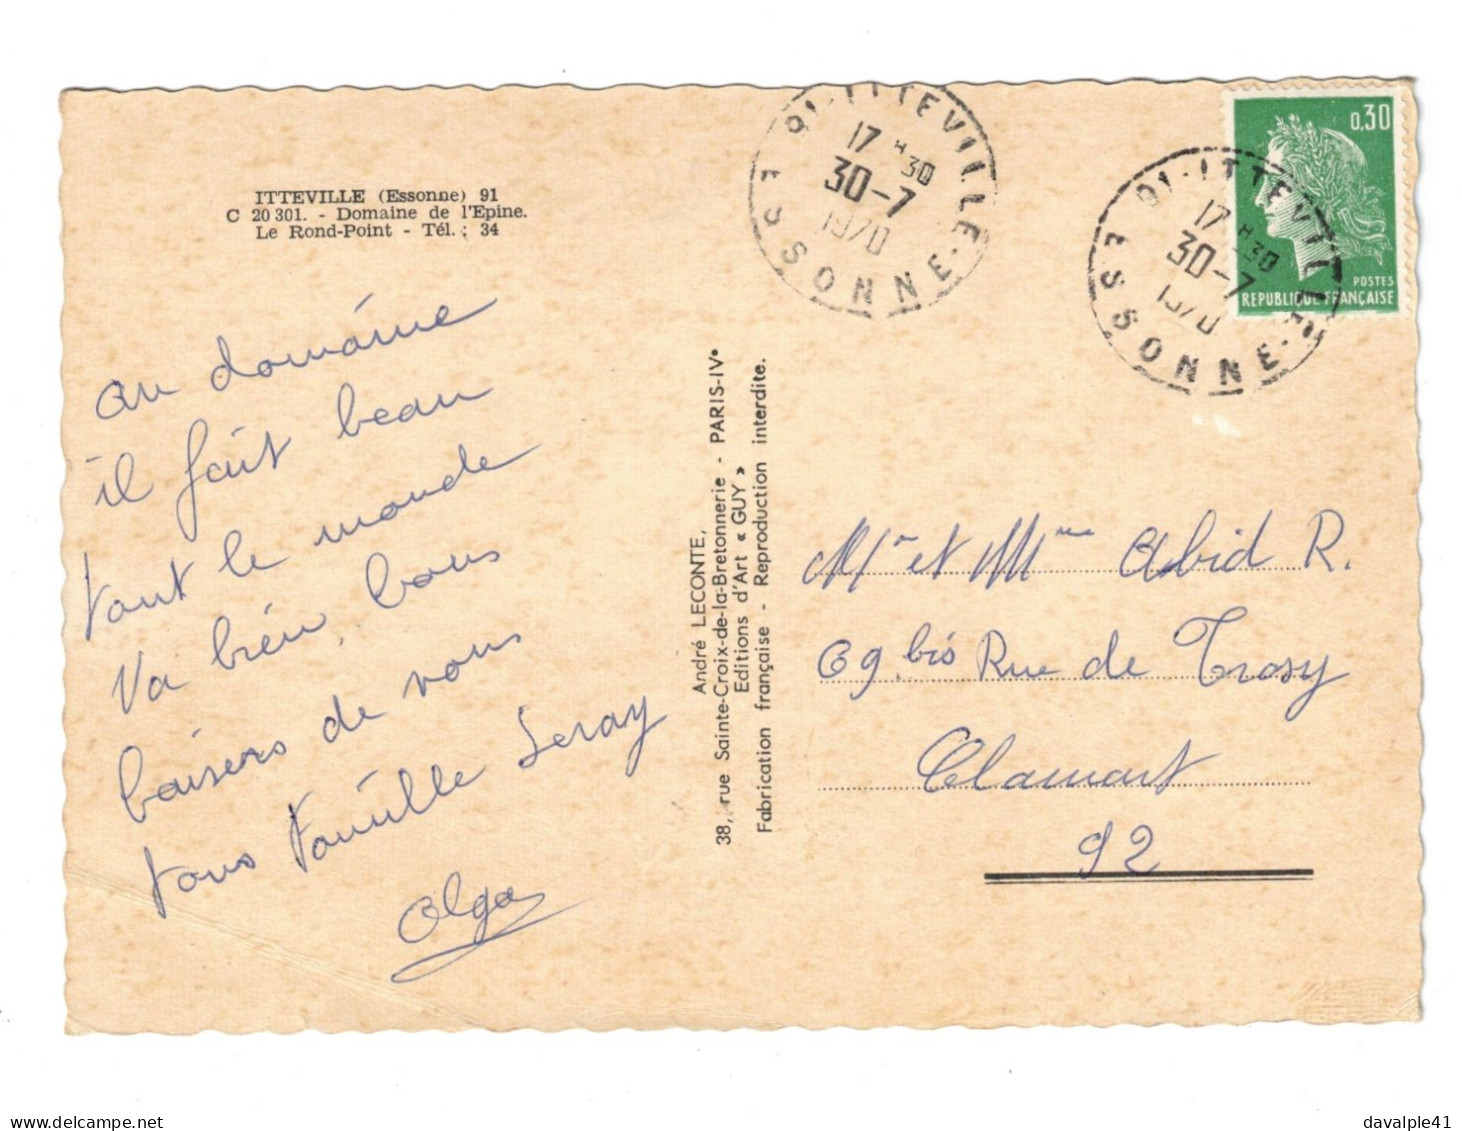 ITTEVILLE (Essonne) 91
C 20 301. - Domaine de l'Epine.
Le Rond-Point - Tél. : 34
au domaine
il fait beau
tout le monde
va bien, bons
baisers de nous
tous famille Leray
Olga
André LECONTE,
38, rue Sainte-Croix-de-la-Bretonnerie - PARIS-IVe
Editions d'Art « GUY »
Fabrication française - Reproduction interdite.
91-ITTEVILLE
17 H 30
30-7
1970
ESSONNE
91-ITTEVILLE
17 H 30
30-7
1970
ESSONNE
0,30
POSTES
REPUBLIQUE FRANÇAISE
Mr et Mme Abid R.
69 bis Rue de Trosy
Clamart
92
davalple41